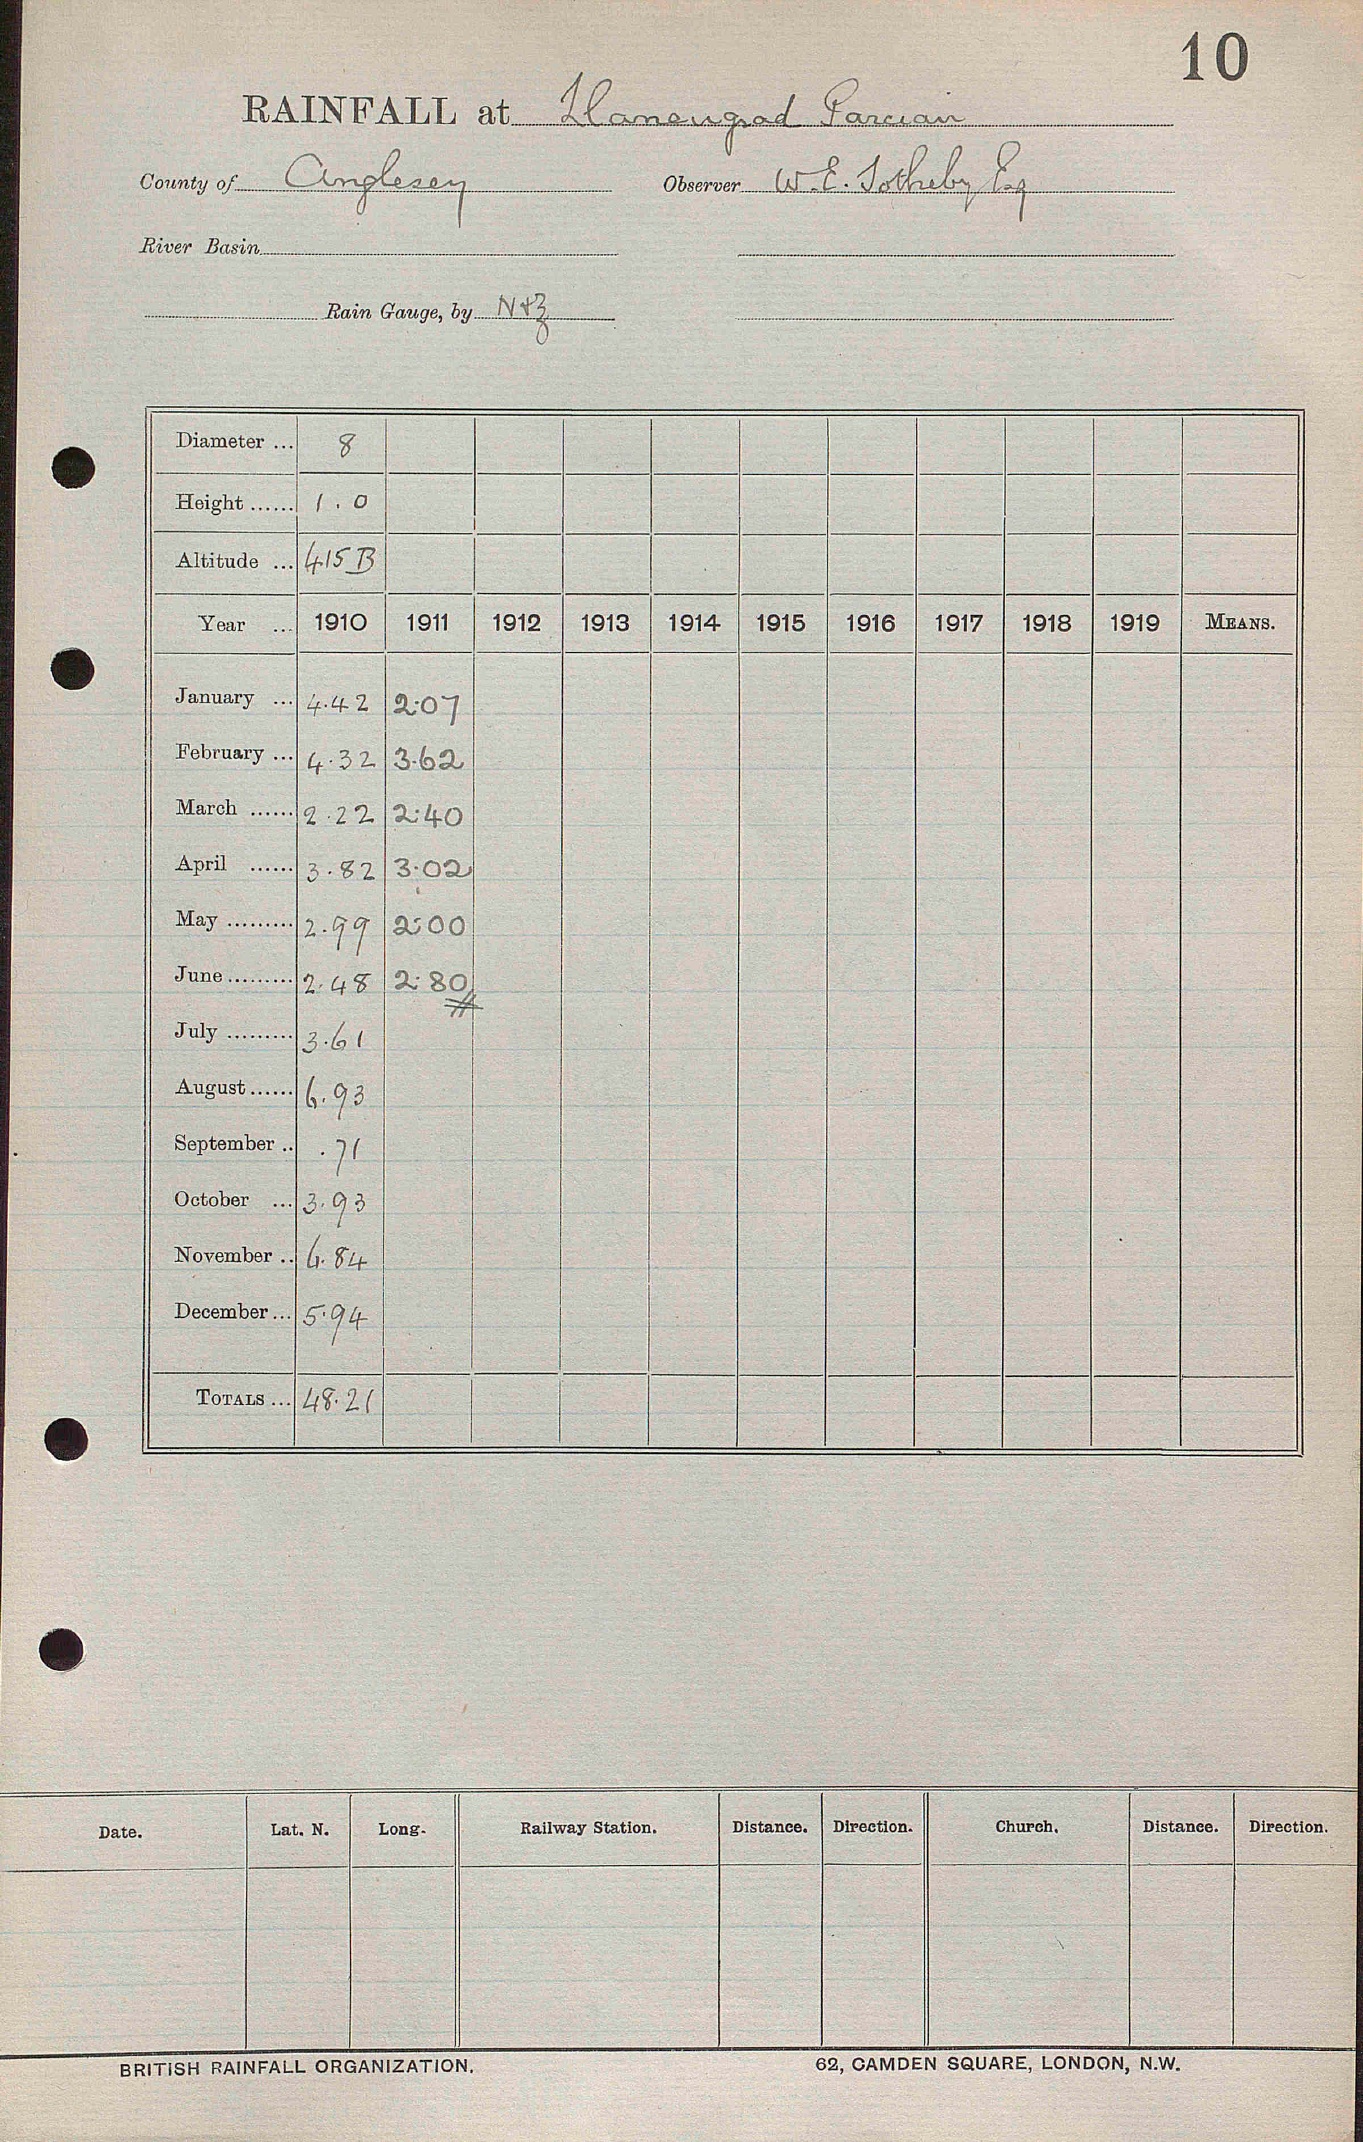 10
RAINFALL at Llaneugrad Parcian
County of Anglesey Observer W. E. Sotheby Esq
River Basin
Rain Gauge, by N+Z
Diameter ... 8
Height ...... 1.0
Altitude ... 415 B
Year ... 1910 1911 1912 1913 1914 1915 1916 1917 1918 1919 MEANS.
January ... 4.42 2.07
February ... 4.32 3.62
March ...... 2.22 2.40
April ...... 3.82 3.02
May ......... 2.99 2.00
June ......... 2.48 2.80
July ......... 3.61
August ...... 6.93
September .. .71
October ... 3.93
November .. 6.84
December ... 5.94
TOTALS ... 48.21
Date. Lat. N. Long. Railway Station. Distance. Direction. Church. Distance. Direction.
BRITISH RAINFALL ORGANIZATION. 62, CAMDEN SQUARE, LONDON, N.W.